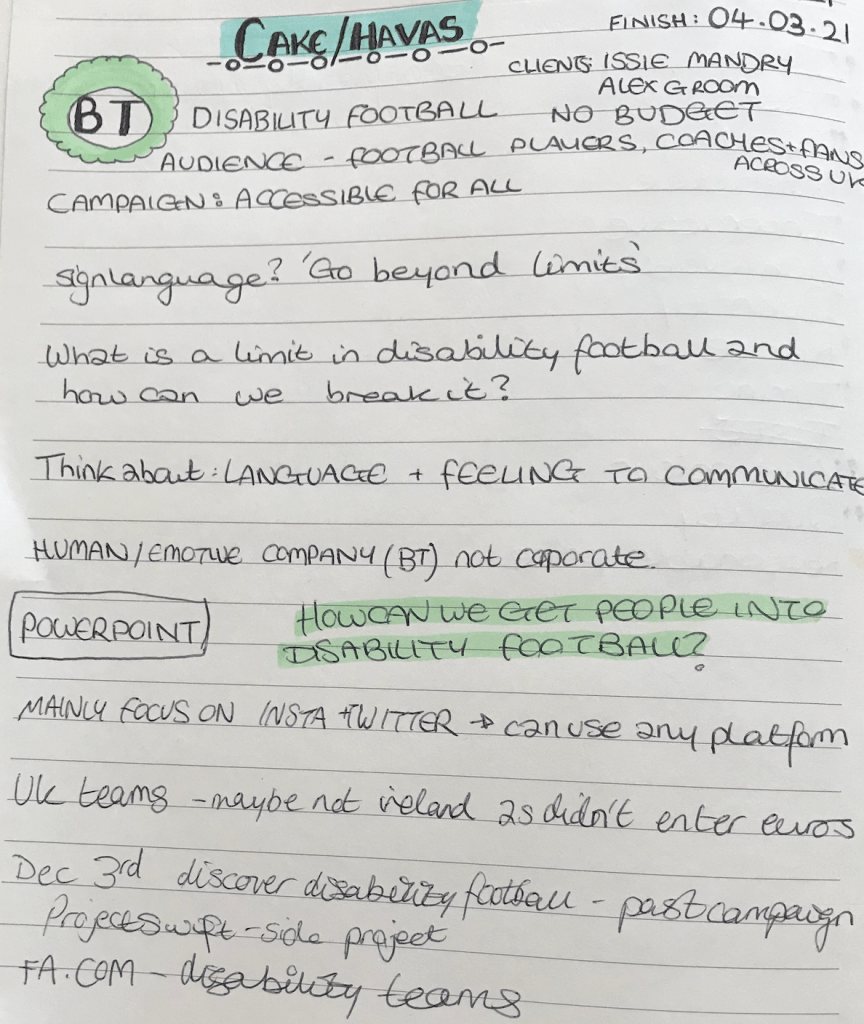 CAKE/HAVAS
FINISH: 04.03.21
CLIENTS: ISSIE MANDRY
ALEX GROOM
BT
DISABILITY FOOTBALL NO BUDGET
AUDIENCE - FOOTBALL PLAYERS, COACHES + FANS
ACROSS UK
CAMPAIGN: ACCESSIBLE FOR ALL
signlanguage? 'Go beyond limits'
What is a limit in disability football and
how can we break it?
Think about: LANGUAGE + FEELING TO COMMUNICATE
HUMAN/EMOTIVE COMPANY (BT) not coporate.
POWERPOINT
HOW CAN WE GET PEOPLE INTO
DISABILITY FOOTBALL?
MAINLY FOCUS ON INSTA + TWITTER → can use any platform
UK teams - maybe not ireland as didn't enter euros
Dec 3rd discover disability football - past campaign
Project swift - side project
FA.COM - disability teams